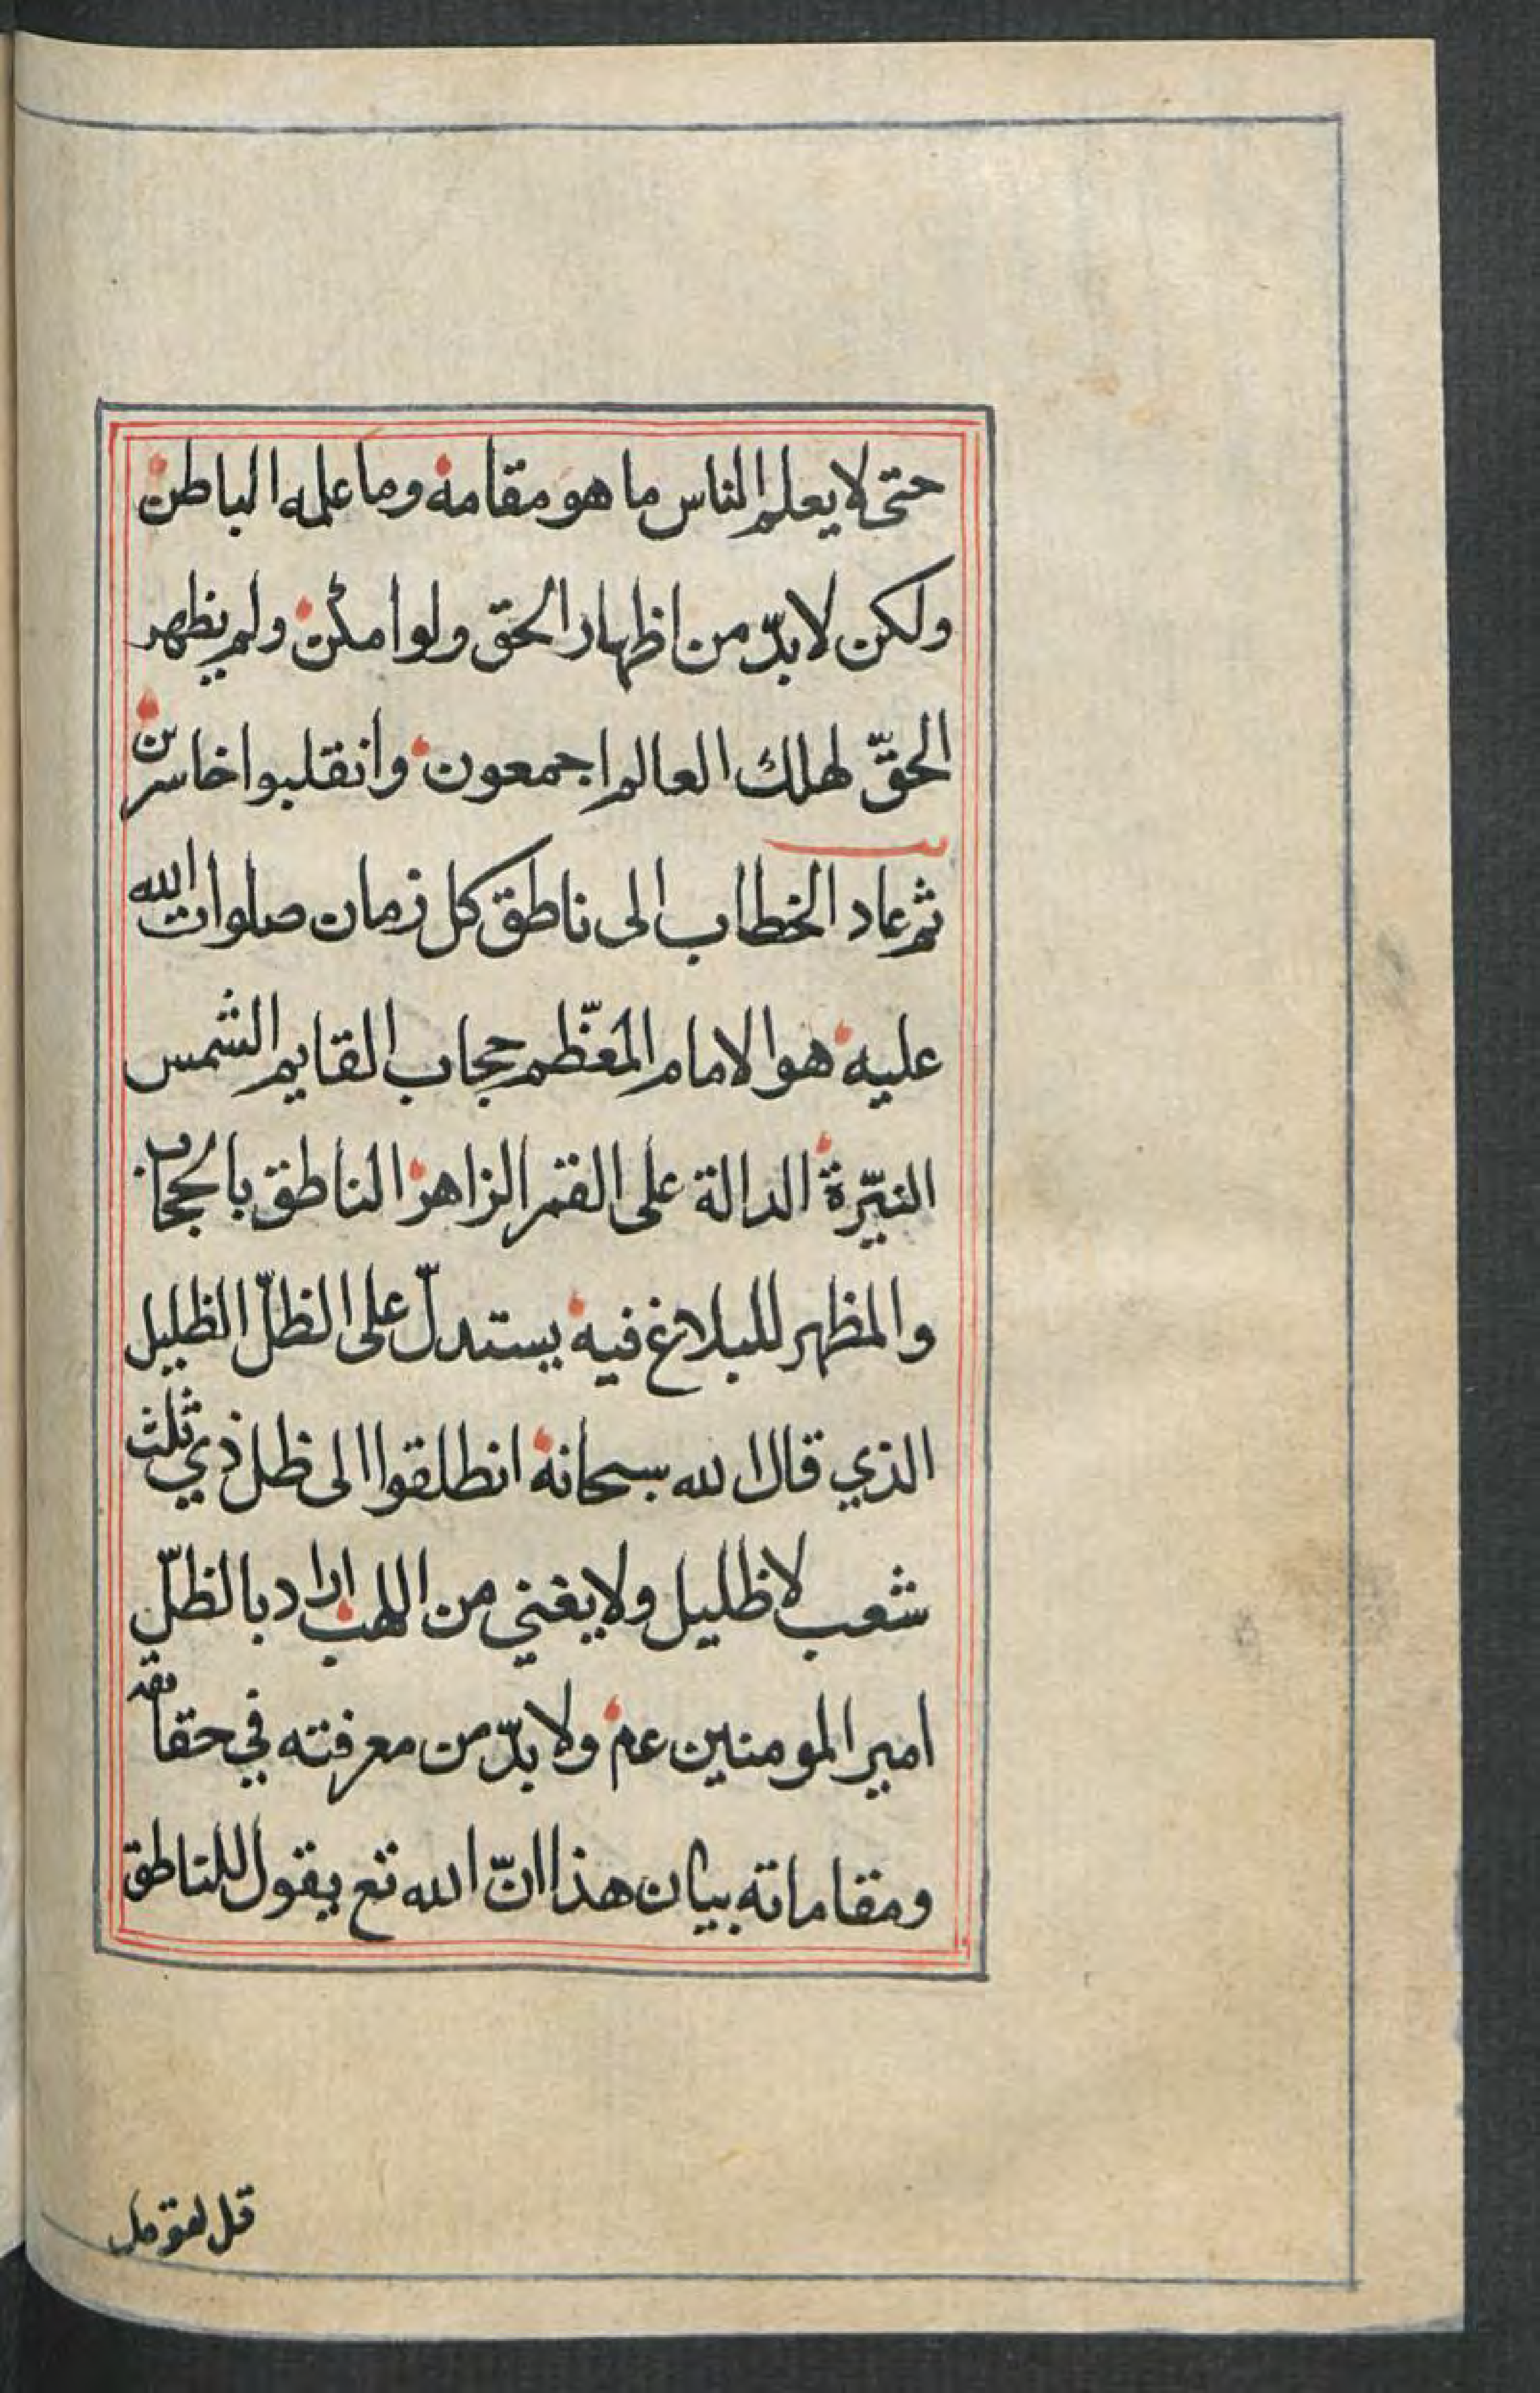 حتى لا يعلم الناس ما هو مقامه وما علمه الباطن
ولكن لا بدّ من اظهار الحق ولوا مكن ولم يظهر
الحقّ لهلك العالم اجمعون وانقلبوا خاسرين
ثم عاد الخطاب الى ناطق كل زمان صلوات الله
عليه هو الامام المعظّم حجاب القايم الشمس
النيّرة الدالة على القمر الزاهر الناطق بالحجاب
والمظهر للبلاغ فيه يستدلّ على الظلّ الظليل
الذي قال الله سبحانه انطلقوا الى ظل ذي ثلث
شعب لا ظليل ولا يغني من اللهب اراد بالظلّ
امير المومنين عم ولا بدّ من معرفته في حقائقه
ومقاماته بيان هذا انّ الله تع يقول للناطق
قل لقومك